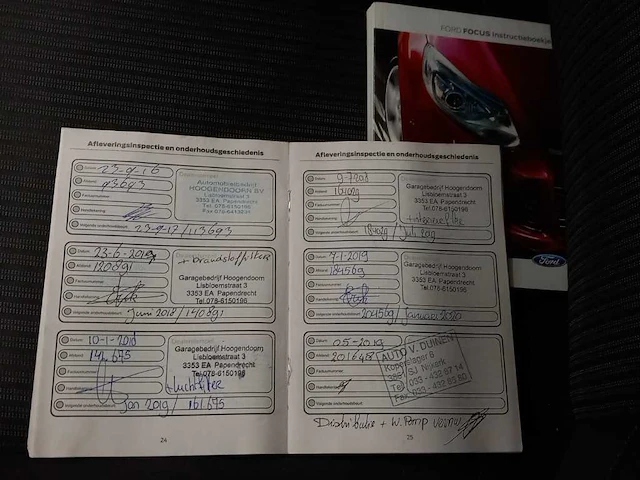 FORD FOCUS Instructieboekje
Ford
Afleveringsinspectie en onderhoudsgeschiedenis
Datum 23-9-16
Afstand 93693
Factuurnummer
Handtekening
Volgende onderhoudsbeurt 23-9-17/113693
Automobielbedrijf
HOOGENDOORN BV
Lisbloemstraat 3
3353 EA Papendrecht
Tel. 078-6150196
Datum 23-6-2017
Afstand 120891
Factuurnummer
Handtekening
Volgende onderhoudsbeurt Juni 2018/140891
+ brandstoffilter
Garagebedrijf Hoogendoorn
Lisbloemstraat 3
3353 EA Papendrecht
Tel.078-6150196
Datum 10-1-2018
Afstand 141675
Factuurnummer
Handtekening
Volgende onderhoudsbeurt Jan 2019/161675
Garagebedrijf Hoogendoorn
Lisbloemstraat 3
3353 EA Papendrecht
Tel.078-6150196
+luchtfilter
24
Afleveringsinspectie en onderhoudsgeschiedenis
Datum
Afstand
Factuurnummer
Handtekening
Volgende onderhoudsbeurt
Garagebedrijf Hoogendoorn
Lisbloemstraat 3
3353 EA Papendrecht
Tel.078-6150196
+interieurfilter
Datum 7-1-2019
Afstand 184569
Factuurnummer
Handtekening
Volgende onderhoudsbeurt 204569/Januari 2020
Garagebedrijf Hoogendoorn
Lisbloemstraat 3
3353 EA Papendrecht
Tel.078-6150196
Datum 05-2019
Afstand 201648
Factuurnummer
Handtekening
Volgende onderhoudsbeurt
AUTO V. DUINEN
Koperslager 6
Nijkerk
Tel. 033-432 67 14
Fax 033-432
Distributie + W.Pomp vernw
25